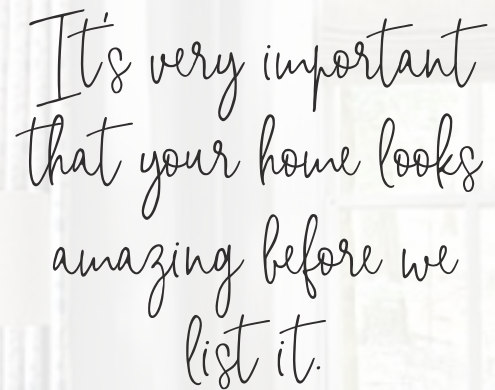 It's very important
that your home looks
amazing before we
list it.